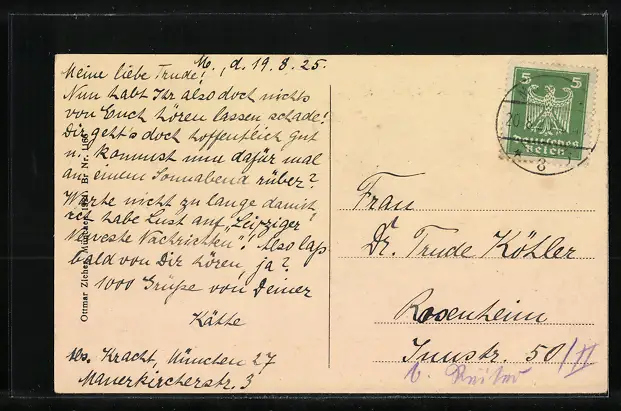 M., d. 19.8.25.
Meine liebe Trude!
Nun habt Ihr also doch nichts
von Euch hören lassen schade!
Dir geht's doch hoffentlich gut
u. kommst nun dafür mal
an einem Sonnabend rüber?
Warte nicht zu lange damit,
ich habe Lust auf „Leipziger
Neueste Nachrichten"! Also laß
bald von Dir hören, ja?
1000 Grüße von Deiner
Käthe
Abs. Kracht, München 27
Mauerkircherstr. 3
Ottmar Zieher, München Br. Nr.
5 5
Deutsches
Reich
8
Frau
Dr. Trude Köhler
Rosenheim
Innstr. 50/II
b. Reiter